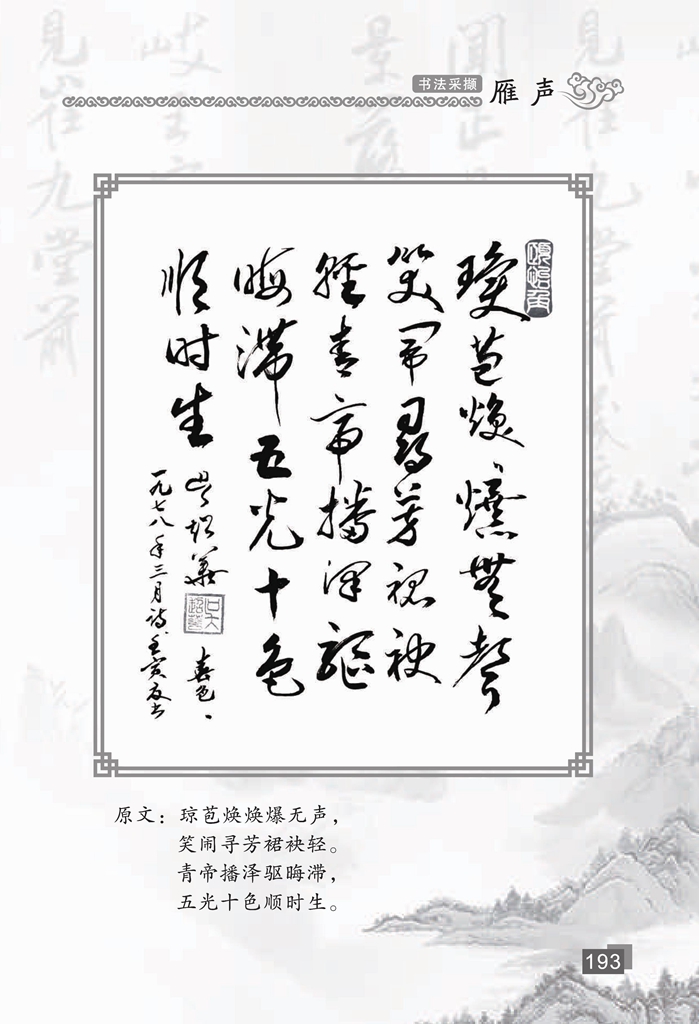 书法采撷
雁声
琼芭焕〻爆無聲
笑闹尋芳裙袂
轻青帝播泽驱
晦滞五光十色
顺时生
一九七八年三月诗壬寅夏书
原文：琼芭焕焕爆无声，
笑闹寻芳裙袂轻。
青帝播泽驱晦滞，
五光十色顺时生。
193